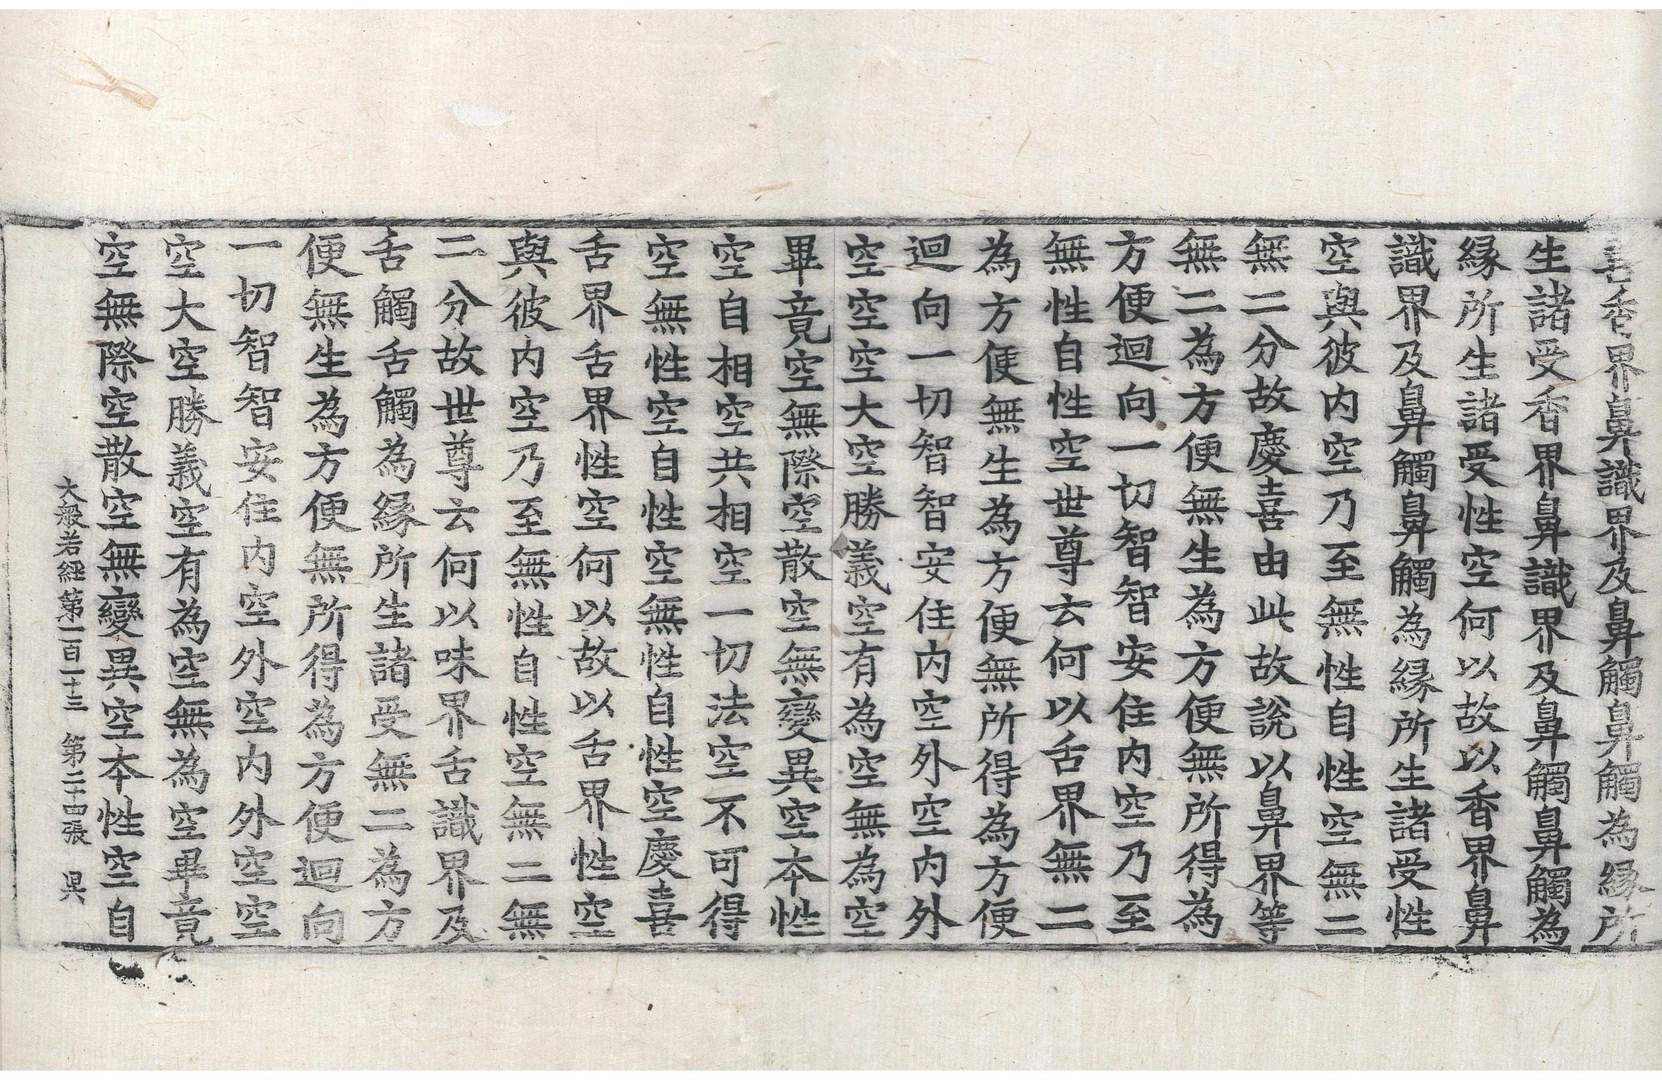 喜香界鼻識界及鼻觸鼻觸為緣所
生諸受香界鼻識界及鼻觸鼻觸為
緣所生諸受性空何以故以香界鼻
識界及鼻觸鼻觸為緣所生諸受性
空與彼內空乃至無性自性空無二
無二分故慶喜由此故說以鼻界等
無二為方便無生為方便無所得為
方便迴向一切智智安住內空乃至
無性自性空世尊云何以舌界無二
為方便無生為方便無所得為方便
迴向一切智智安住內空外空內外
空空空大空勝義空有為空無為空
畢竟空無際空散空無變異空本性
空自相空共相空一切法空不可得
空無性空自性空無性自性空慶喜
舌界舌界性空何以故以舌界性空
與彼內空乃至無性自性空無二無
二分故世尊云何以味界舌識界及
舌觸舌觸為緣所生諸受無二為方
便無生為方便無所得為方便迴向
一切智智安住內空外空內外空空
空大空勝義空有為空無為空畢竟
空無際空散空無變異空本性空自
大般若經第一百一十三　第二十四張　昊